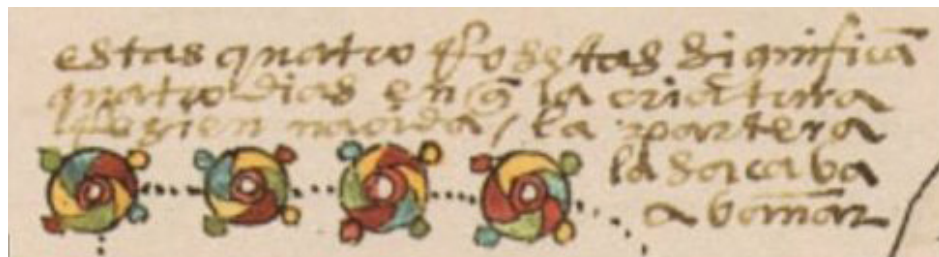 estas quatro Rosetas significā
quatro dias en q̄ la criatura
Rezien nacida / la partera
la sacaba
a